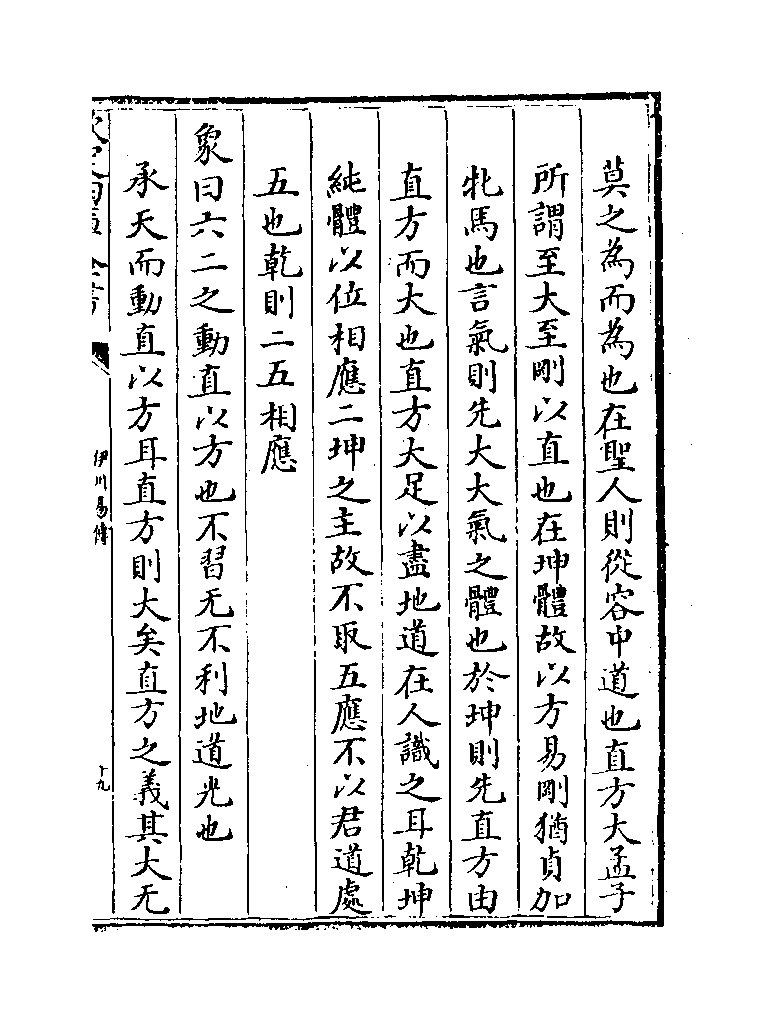 莫之為而為也在聖人則從容中道也直方大孟子
所謂至大至剛以直也在坤體故以方易剛猶貞加
牝馬也言氣則先大大氣之體也於坤則先直方由
直方而大也直方大足以盡地道在人識之耳乾坤
純體以位相應二坤之主故不取五應不以君道處
五也乾則二五相應
象曰六二之動直以方也不習无不利地道光也
承天而動直以方耳直方則大矣直方之義其大无
伊川易傳
十九